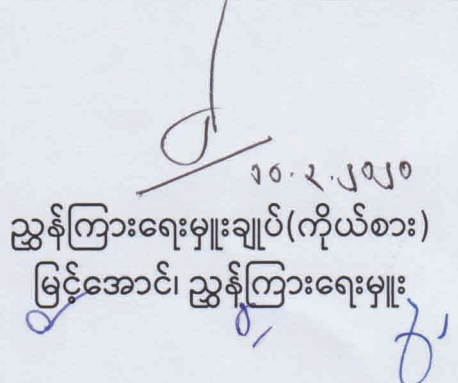 ၁၀.၃.၂၀၂၀
ညွှန်ကြားရေးမှူးချုပ်(ကိုယ်စား)
မြင့်အောင်၊ ညွှန်ကြားရေးမှူး